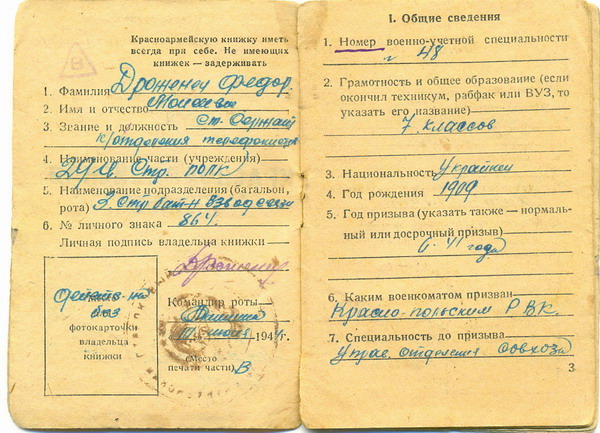 Красноармейскую книжку иметь
всегда при себе. Не имеющих
книжек — задерживать
В
1. Фамилия Дроженец Федор
2. Имя и отчество Моисеевич
3. Звание и должность Ст. Сержант
к/отделения телефонистов
4. Наименование части (учреждения)
29 гв. Стр. полк
5. Наименование подразделения (батальон,
рота) 3 Стр бат-н взвод связи
6. № личного знака 864.
Личная подпись владельца книжки
Место
фотокарточки
владельца
книжки
Командир роты
194 г.
(Место
печати части)
I. Общие сведения
1. Номер военно-учетной специальности
48
2. Грамотность и общее образование (если
окончил техникум, рабфак или ВУЗ, то
указать его название)
7 классов
3. Национальность Украинец
4. Год рождения 1909
5. Год призыва (указать также — нормаль-
ный или досрочный призыв)
6. 41 года
6. Каким военкоматом призван
Красно-польским Р.В.К.
7. Специальность до призыва
Управ. отделения совхоза
3